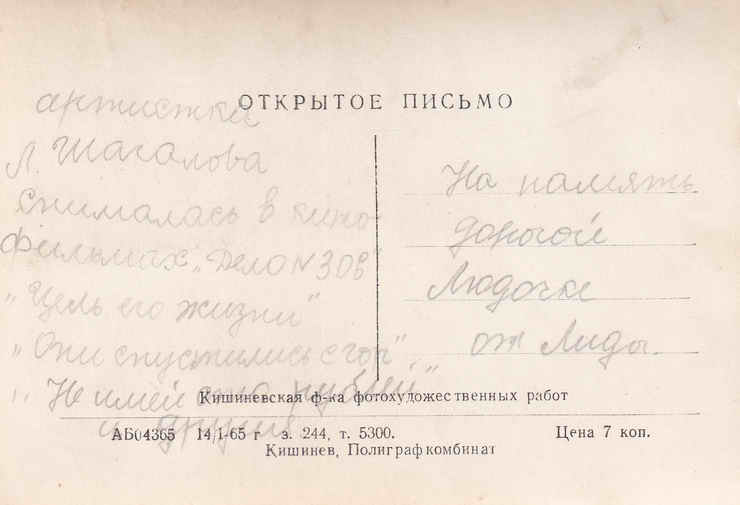 ОТКРЫТОЕ ПИСЬМО
артистка
Л. Шагалова
снималась в кино
фильмах: „Дело N 306"
„Цель его жизни"
„Они спустились с гор"
„Не имей сто рублей"
и другие
На память
дорогой
Людочке
от Лиды.
Кишиневская ф-ка фотохудожественных работ
АБ04365 14/I-65 г з. 244, т. 5300. Цена 7 коп.
Кишинев, Полиграфкомбинат